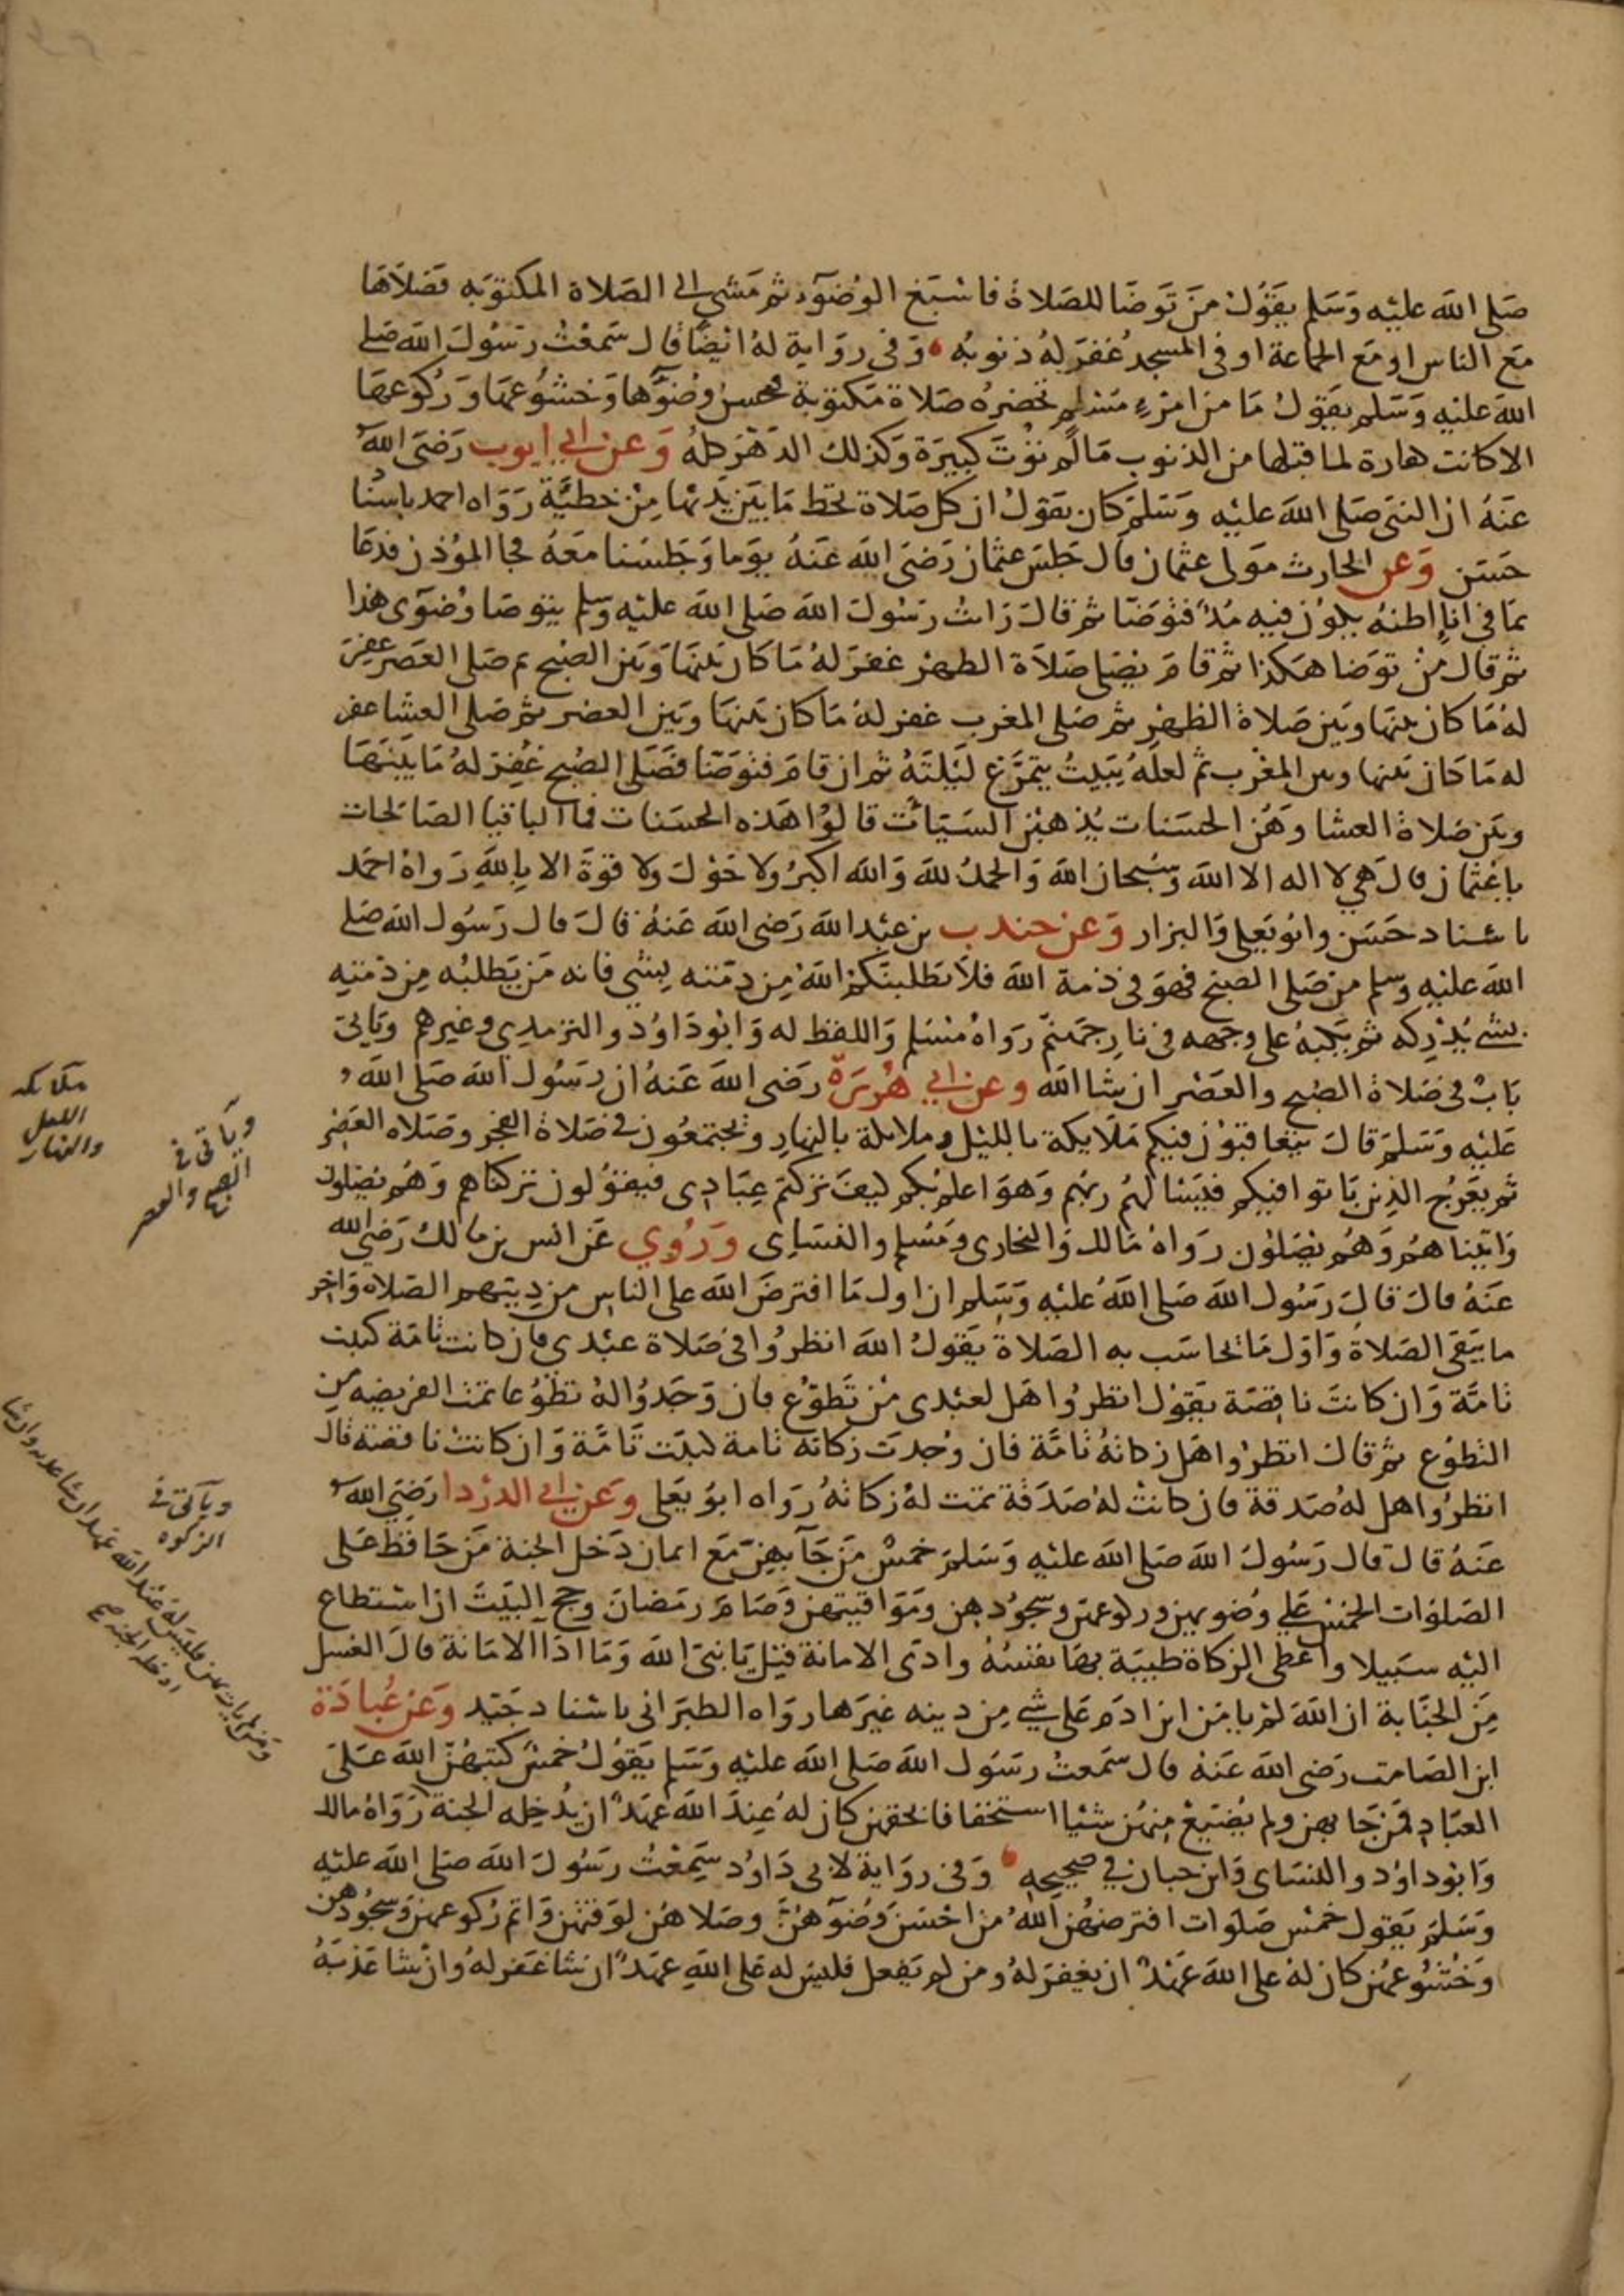 صَلى الله عليْه وَسَلم يقَوُل مَن تَوضَا للصَلاة فاسْبَغ الوُضوَء ثم مَشي الى الصَلاة المكتوَبه فصَلاهَا
مَع الناس او مَع الجماعة او في المسجد غُفرَ لهُ ذنوبُه وَفي روَاية لهُ ايضًا قال سَمعْتُ رسَوُل الله صَلى
الله عليْه وَسَلم يقَول مَا من امرْءٍ مسْلمٍ تحضرُه صَلاة مَكتوَبة فيحسن وُضوءَها وَخشوُعهَا وَركوُعهَا
الا كانت كفارة لما قبلها من الذنوب مَالم توُت كبيَرة وَكذلك الدَهْر كلهُ وَعن ابي ايوب رَضيَ الله
عَنهُ ان النبَي صَلى الله عليْه وَسَلمَ كان يَقوُل ان كل صَلاة تحط مَا بيَن يدَيْها مِنْ خطيَّة رَوَاه احمد باسنُا
حَسَن وَعن الحارث مَولى عثمان قال جَلسَ عثمان رَضيَ الله عَنهُ يوَما وَجَلسْنا معَهُ فجا المؤذن فدعَا
بمَا في اناٍ اظنهُ يكوُن فيه مُدّ فتوَضّا ثم قالَ رَايتُ رسَوُلَ الله صَلى الله عليْه وسَلم يتوضا وُضوَى هذا
ثم قال مَنْ توَضا هَكذا ثم قامَ يصَلى صَلاَة الظهر غفرَ لهُ مَا كان بَينهَا وَبَين الصُبح ثم صَلى العصَر غفِرَ
لهُ مَا كان بينهَا وبَين صَلاة الظهْر ثم صَلى المغرب غفر لهُ مَا كان بينهَا وبَين العَصْر ثم صَلى العشا غفر
له مَا كان بَينها وبين المغْرب ثم لعَلهُ يَبَيتُ يتمَرَّغ لَيْلتَهُ ثم ان قامَ فتوَضّا فصَلَى الصُبح غُفِرَ لهُ مَا بَيَنهَا
وبَين صَلاة العشا وَهُن الحسَنات يُذهبْنَ السَيَّات قالوُا هَذه الحسَنات فما الباقيا الصَالحات
يا عثمان قالَ هي لا اله الا الله وَسُبحان الله وَالحمدُ لله وَالله اكبَرُ ولا حَوْل ولا قوَةَ الا بِاللهِ رَواهُ احمَد
باسْناد حَسَن وابوُ يَعلى وَالبزار وَعن جندب بن عبْد الله رَضى الله عَنهُ قالَ قال رَسُول الله صَلى
الله عليْه وسَلم من صَلى الصبح فهوَ في ذمة الله فلاَ يَطلبنَكمُ اللهُ مِن ذِمَّته بِشيْ فانه مَن يَطلبُه مِن ذمَتِه
بشى يُدْرِكه ثم يَكبهُ على وجَهه في نارِ جهَنمَّ رَوَاهُ مُسْلم وَاللفظ له وَابوُدَاوُد والترمِدِي وغيرهم ويَاتيَ
بَابٌ في صَلاة الصُبح والعَصْر ان شا الله وعن ابي هُريَرَة رَضى الله عَنهُ ان رَسُول الله صَلَى الله
عَليْه وَسَلمَ قالَ يَتعاقبوُن فيكم مَلاَيكة بالليْل وملايكة بالنهَارِ وَيجتمَعُون في صَلاة الفجر وصَلاه العَصْر
ثم يعَرُجُ الذين بَاتوا فيكم فيَسَالهُمُ ربهُم وَهوَ اعلمُ بكم كيفَ تَرَكتم عِبَادِى فيقوُلون تركناهم وَهُم يصَلون
وَاتَيْناهُمْ وَهُم يُصَلوُن رَواهُ مَالك وَالبخارى ومَسُلم والنسَاى وَرُوِي عَن انس بن مالك رَضيَ الله
عَنهُ قالَ قالَ رَسُول الله صَلى اللهُ عليْه وَسَلم ان اول مَا افترضَ الله على الناسِ من دِينهم الصَلاه وَاخِر
ما يَبَقى الصَلاةُ وَاول مَا يحاسَب به الصَلاة يَقوَلُ الله انظرُوا في صَلاة عبْدى فان كانت تامَة كتبت
تامَّة وَان كانتَ ناقصَة يقول انظرُوا هَل لعبْدى مْن تَطوّع فان وَجَدُوا لهُ تطوُعا تمت الفريضه من
التطوُع ثم قالَ انظرُوا هَل زكاتهُ تامَّة فان وُجدتَ زكاته تامة كتبت تَامَّة وَان كانت ناقصَة قال
انظرُوا هل لهُ صَدقة فان كانتْ لهُ صَدَقة تمت لهُ زكاتهُ رَوَاه ابوُ يعَلى وَعن ابي الدرْدا رَضيَ الله
عَنهُ قالَ قال رَسُولُ الله صَلى الله عليْه وَسَلمَ خمسٌ مَن جَآ بهنّ مَع ايمان دَخل الجنة مَن حَافظ عَلى
الصَلوَات الخمْس عَلى وُضوءهن وركوعهن وسجوُدهن ومَوَاقيتهن وَصَامَ رمَضانَ وحج البَيتَ ان استطاع
اليْه سَبيلا واعَطى الزكاة طيبَة بهَا نفسُهُ وادىَ الامانة قيْل يَا نبىَ الله وَمَا ادَا الامَانة قالَ الغسل
مِنَ الجنَابة ان اللهَ لمْ يامَن ابن ادَم عَلى شي مِن دينه غيَرَها روَاه الطبَرَانى باسْناد جَيّد وَعَن عُبادَة
ابن الصَامت رَضى الله عَنهُ قال سَمعتُ رسَول الله صَلى الله عليْه وَسَلم يَقوُلُ خمسٌ كتبَهُنّ الله عَلَى
العبَادِ فمَن جَا بهن ولم يُضَيعْ مِنهُن شيْا استخفافا بحقهن كان لهُ عِندَ الله عهَدٌ ان يُدْخِله الجنة رَوَاهُ مالك
وَابوُداوُد والنسَاى وَابن حبان في صَحيحِه وَفي روَاية لابي دَاوُد سَمِعْتُ رسَوُلَ الله صَلى الله عليْه
وَسَلمَ يَقول خمْس صَلوات افترَضهُن اللهُ من احْسَن وُضوءَهُنَّ وصَلاهُن لوَقتهن وَاتم رُكوعهنَ وَسجُودهن
وَخُشوُعهُن كان لهُ على الله عَهَدٌ ان يغفرَ لهُ ومن لم يَفعل فليسَ له عَلى اللهِ عهَدٌ ان شا غفر لهُ وان شا عَذبَهُ
ملائكه
الليل
والنهار
وياتى فى
الصبح والعصر
وياتى فى
الزكوه
ومن لم يات بهن فليس له عند الله عهد ان شا عذبه وان شا
ادخله الجنه